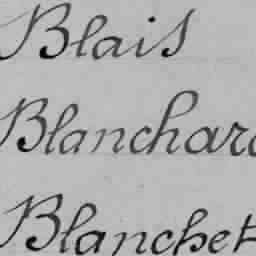 Blais
Blanchard
Blanchet